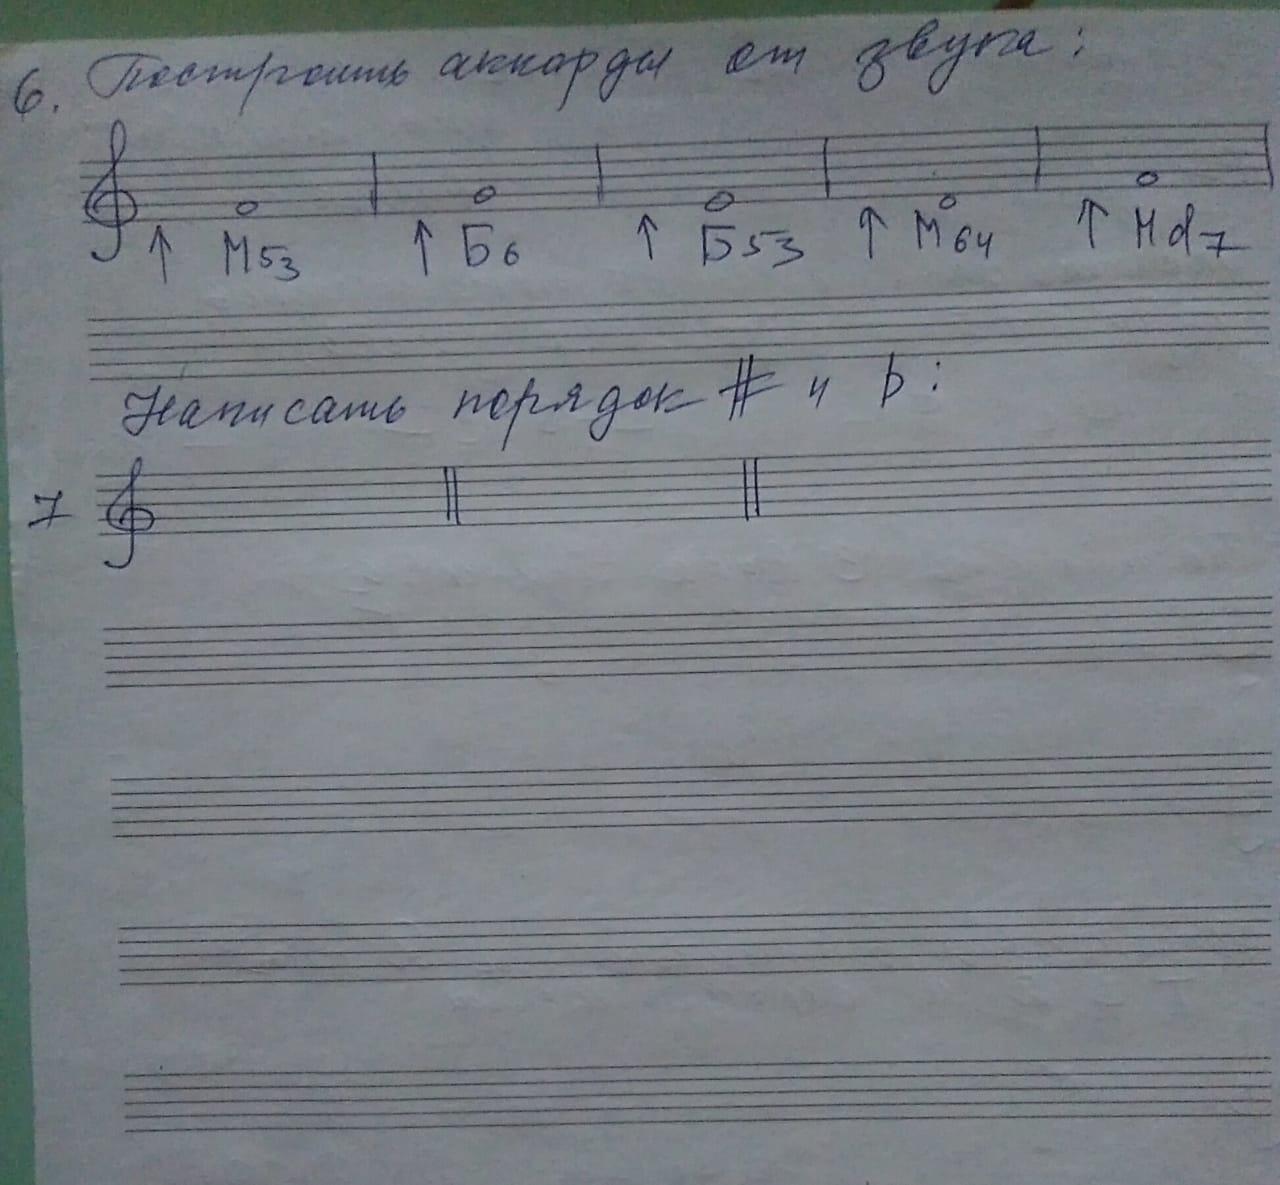 6. Построить аккорды от звука:
↑ М53 ↑ Б6 ↑ Б53 ↑ М64 ↑ Мd7
Написать порядок # и b:
7